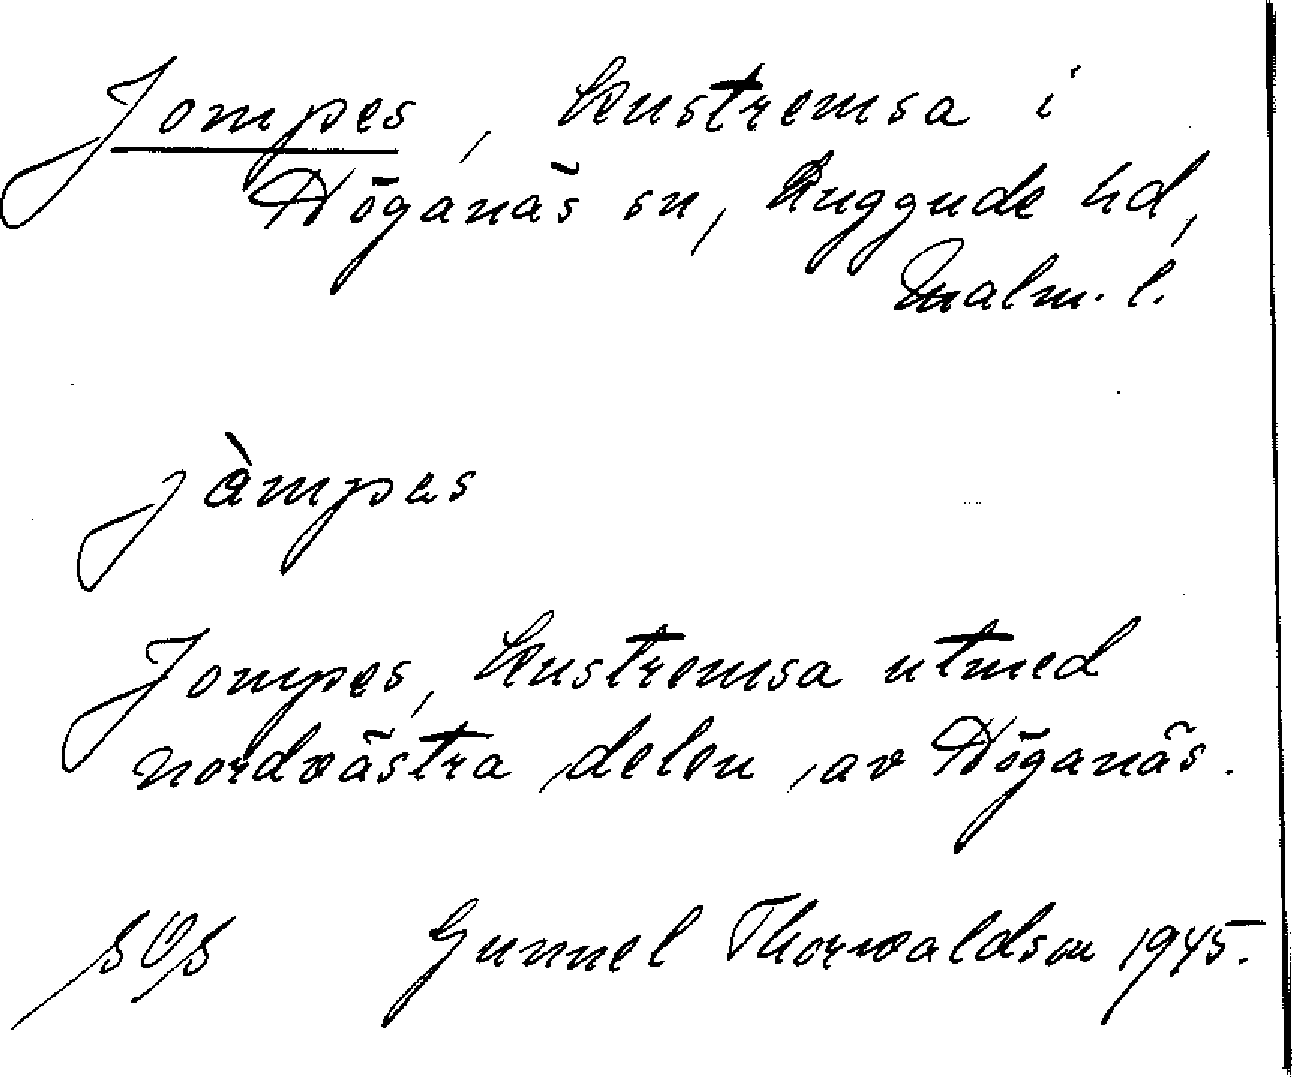 Jompes, kustremsa i
Höganäs sn, Luggude hd,
Malm. l.
jàmpas
Jompes, kustremsa utmed
nordvästra delen av Höganäs.
SOS Gunnel Thorwaldson 1945.